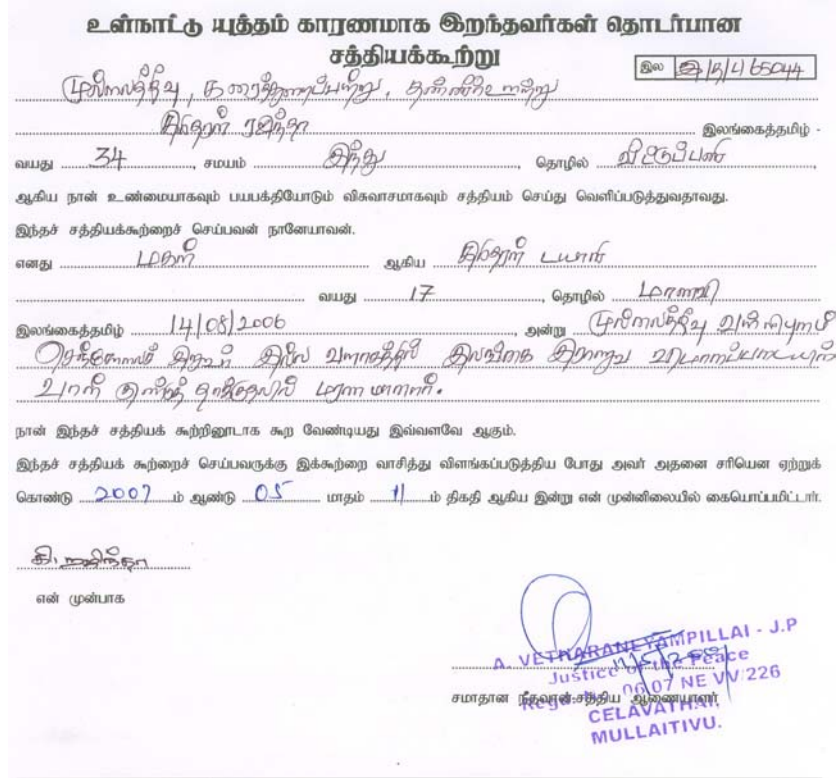 உள்நாட்டு யுத்தம் காரணமாக இறந்தவர்கள் தொடர்பான
சத்தியக்கூற்று
இல
முல்லைத்தீவு, கரைத்துறைப்பற்று, தண்ணீரூற்று
இலங்கைத்தமிழ் -
வயது 34, சமயம் இந்து, தொழில் வீட்டுப்பணி
ஆகிய நான் உண்மையாகவும் பயபக்தியோடும் விசுவாசமாகவும் சத்தியம் செய்து வெளிப்படுத்துவதாவது.
இந்தச் சத்தியக்கூற்றைச் செய்பவன் நானேயாவன்.
எனது மகள் ஆகிய
வயது 17, தொழில் மாணவி
இலங்கைத்தமிழ் 14/08/2006, அன்று முல்லைத்தீவு வள்ளிபுனம்
செஞ்சோலைச் சிறுவர் இல்ல வளாகத்தில் இலங்கை இராணுவ விமானப்படையின்
வான் குண்டுத் தாக்குதலில் மரணமானார்.
நான் இந்தச் சத்தியக் கூற்றினூடாக கூற வேண்டியது இவ்வளவே ஆகும்.
இந்தச் சத்தியக் கூற்றைச் செய்பவருக்கு இக்கூற்றை வாசித்து விளங்கப்படுத்திய போது அவர் அதனை சரியென ஏற்றுக்
கொண்டு 2007 ம் ஆண்டு 05 மாதம் 11 ம் திகதி ஆகிய இன்று என் முன்னிலையில் கையொப்பமிட்டார்.
என் முன்பாக
A. VETHARANEYAMPILLAI - J.P
Justice of the Peace
06 07 NE VV/226
சமாதான நீதவான்-சத்திய ஆணையாளர்
MULLAITIVU.